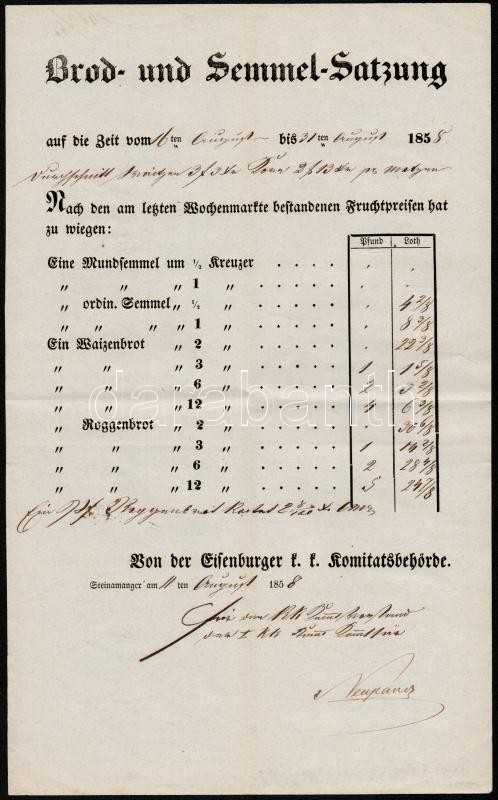 Brod- und Semmel-Satzung
auf die Zeit vom 16 ten August bis 31 ten August 1858
Durchschnitt Waitzen 3 f 3 Xr Korn 2 f 13 Xr pr Metzen
Nach den am letzten Wochenmarkte bestandenen Fruchtpreisen hat
zu wiegen:
Pfund Loth
Eine Mundsemmel um ½ Kreuzer . . . . . .
„ „ „ 1 „ . . . . . .
„ ordin. Semmel „ ½ „ . . . . . 4 2/8
„ „ „ „ 1 „ . . . . . 8 3/8
Ein Waizenbrot „ 2 „ . . . . . 22 3/8
„ „ „ 3 „ . . . . 1 1 5/8
„ „ „ 6 „ . . . . 2 3 2/8
„ „ „ 12 „ . . . . 4 6 3/8
„ Roggenbrot „ 2 „ . . . . . 30 6/8
„ „ „ 3 „ . . . . 1 14 2/8
„ „ „ 6 „ . . . . 2 28 4/8
„ „ „ 12 „ . . . . 5 24 7/8
Ein Pf. Roggenbrot kostet 2
Von der Eisenburger k. k. Komitatsbehörde.
Steinamanger am 11 ten August 1858
Für den KK
der
darabanth